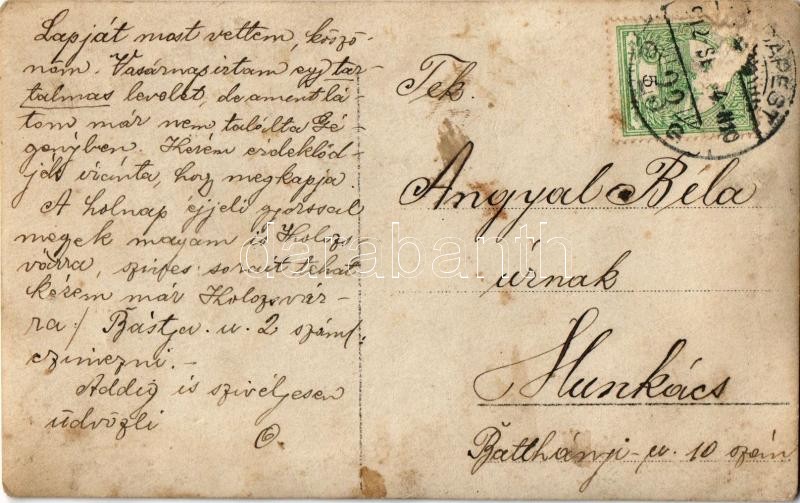 Lapját most vettem, köszö-
nöm. Vasárnap irtam egy tar-
talmas levelet, de amint lá-
tom már nem találta Gé-
gényben. Kérem érdeklőd-
jék iránta, hogy megkapja
A holnap éjjeli gyorssal
megyek magam is Kolozs
várra, szives sorait tehát
kérem már Kolozsvár-
ra / Bástya u. 2 szám/
czimezni. —
Addig is szivélyesen
üdvözli
Tek.
Angyal Béla
úrnak
Munkács
Batthányi-u. 10 szám
darabanth